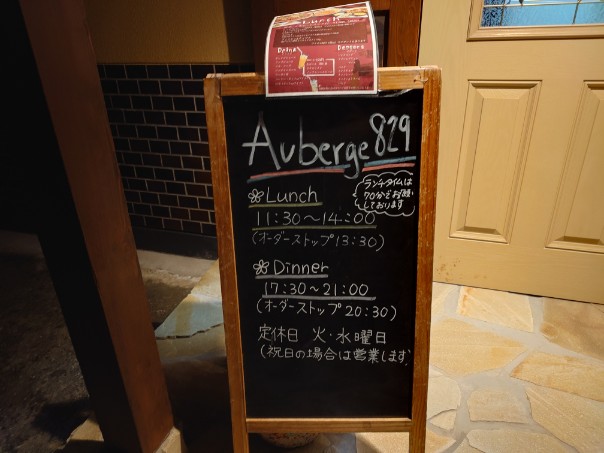 Lunch
Drink
Dessert
Auberge 829
Lunch
ランチタイムは
70分でお願い
しております
11:30～14:00
(オーダーストップ 13:30)
Dinner
17:30～21:00
(オーダーストップ 20:30)
定休日 火・水曜日
(祝日の場合は営業します)